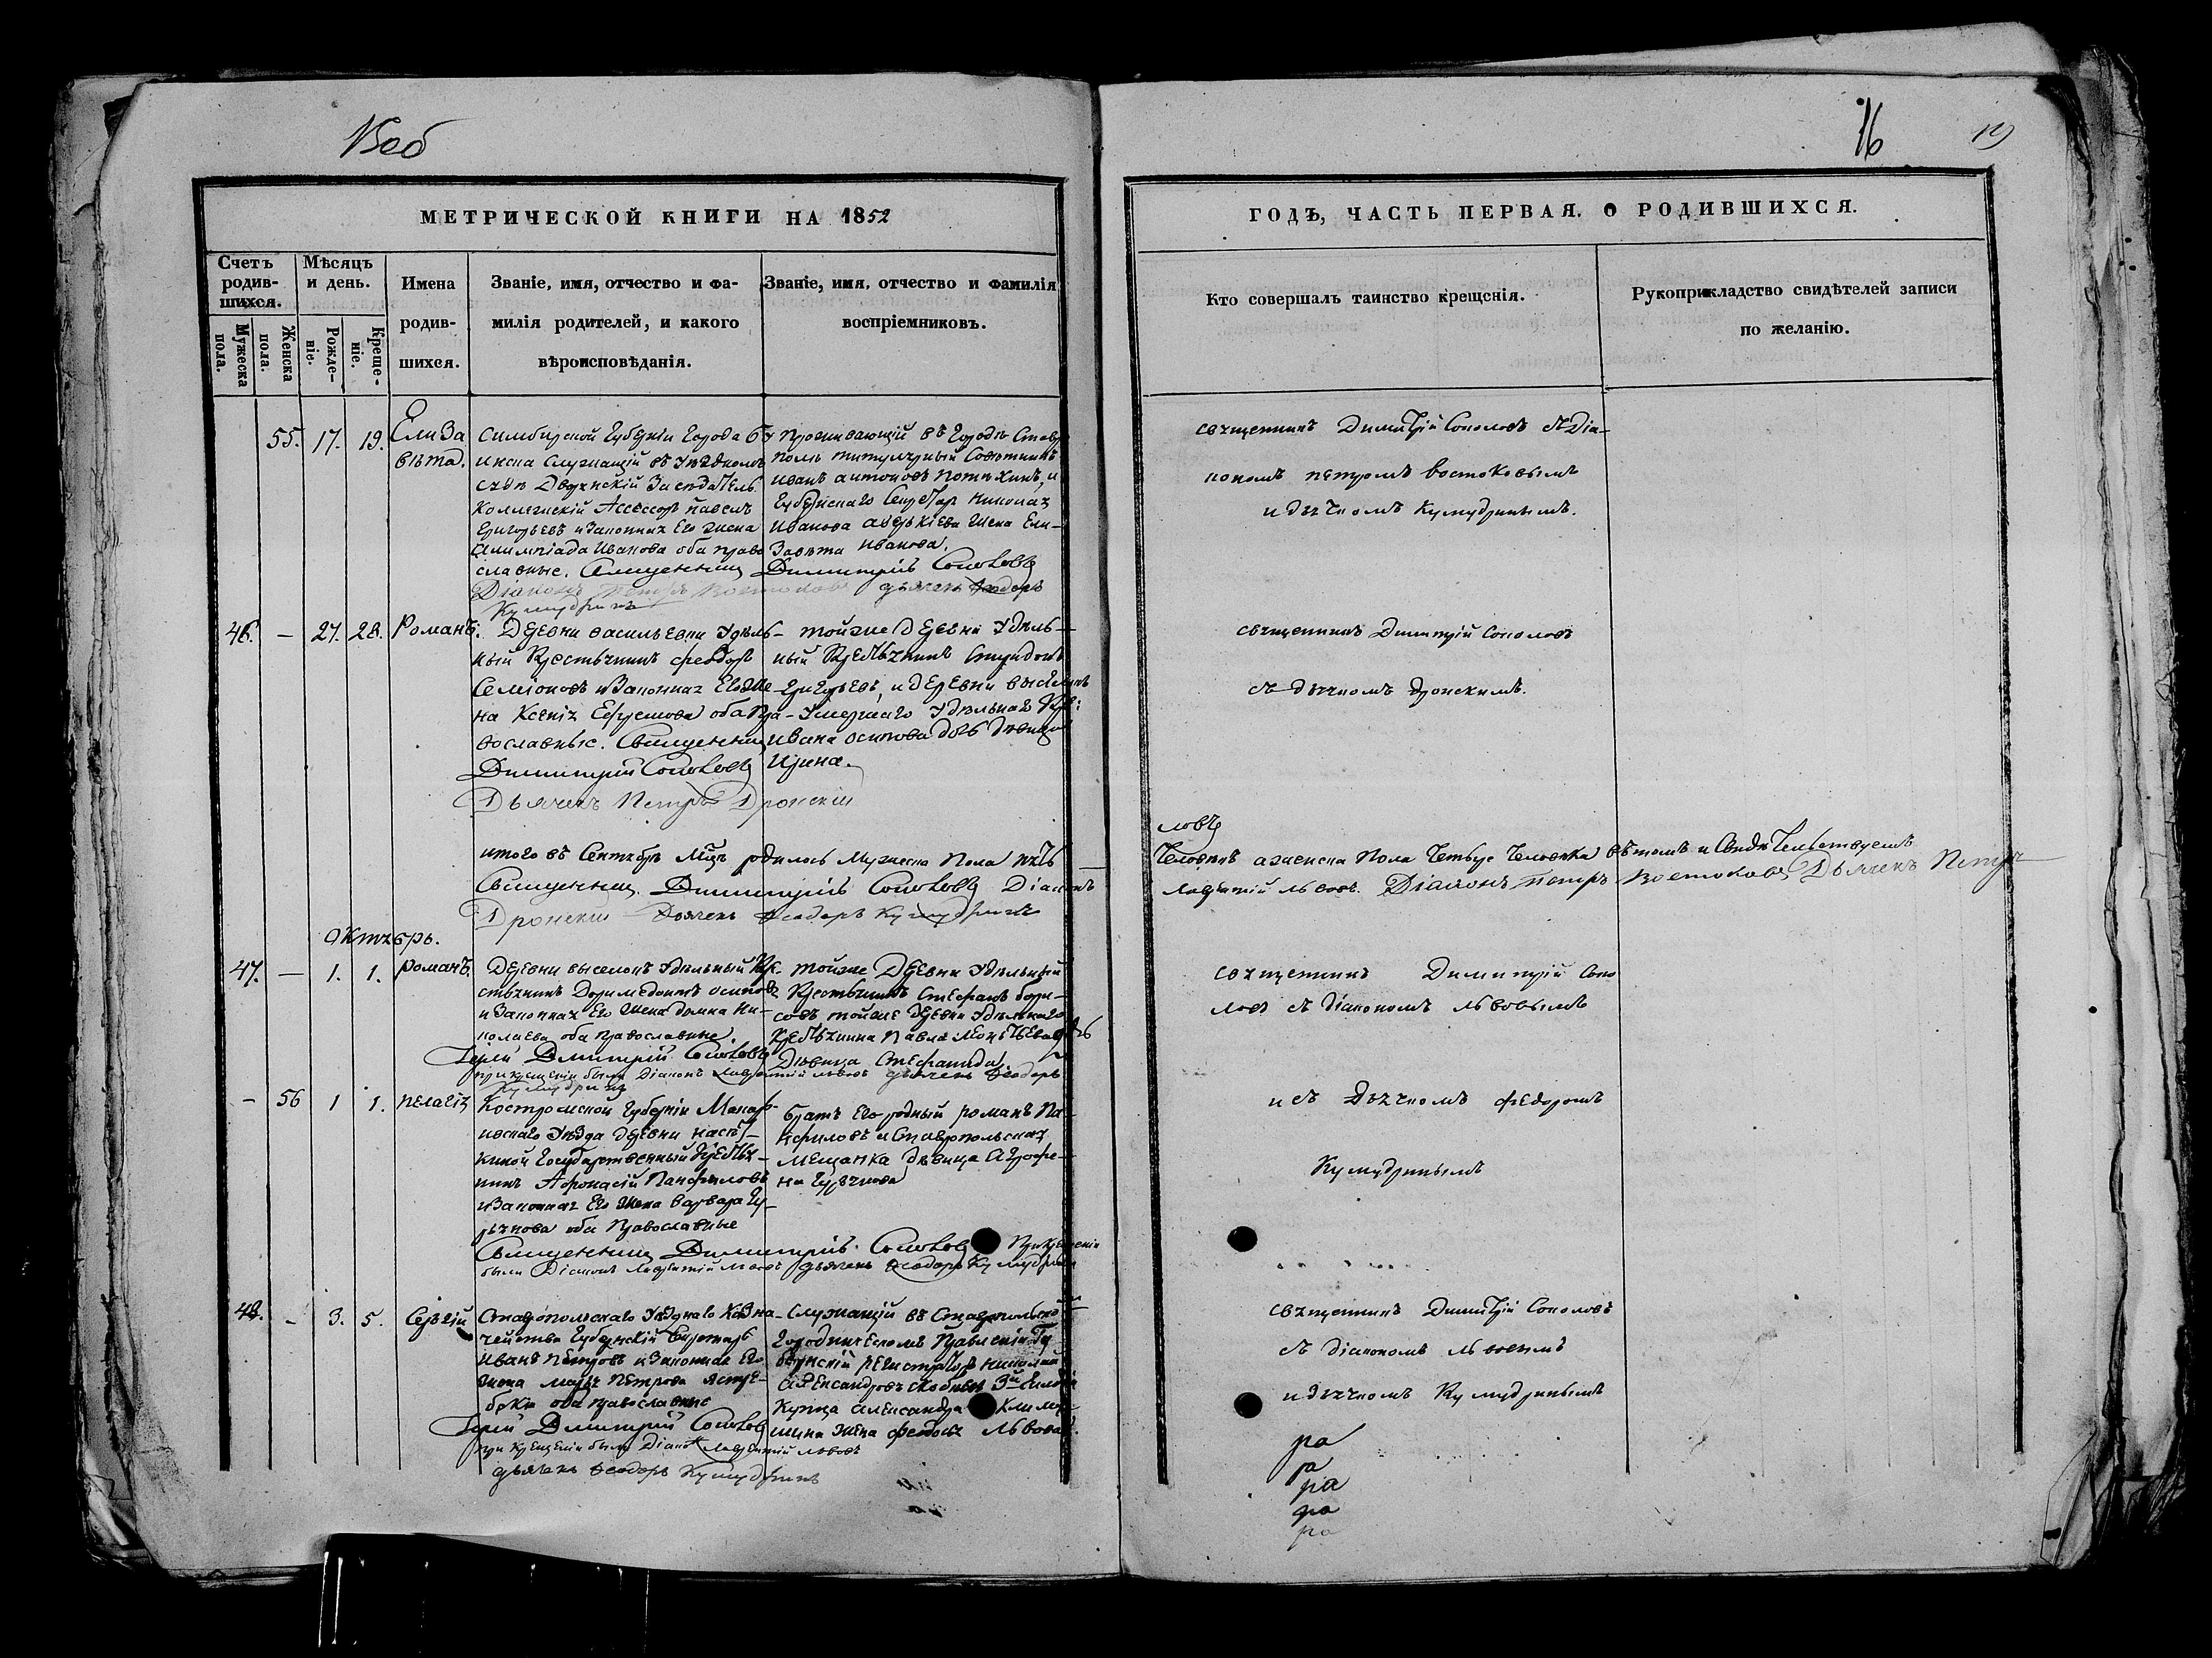 16
МЕТРИЧЕСКОЙ КНИГИ НА 1852
Счетъ родив-шихся.
Мужеска пола.
Женска пола.
Мѣсяцъ и день.
Рожде-ніе.
Креще-ніе.
Имена
родив-
шихся.
Званіе, имя, отчество и фа-
милія родителей, и какого
вѣроисповѣданія.
Званіе, имя, отчество и фамилія
воспріемниковъ.
55. 17. 19. Елиза
вѣта.
Симбирской Губерніи Города Бу
инска Служащій въ Уѣздномъ
судѣ Дворянскій Засѣдатель
Коллежскій Ассессоръ Павелъ
Григорьевъ и Законная Его жена
Алимпіада Иванова оба право
славные. Священникъ Димитрій Соколовъ
Діаконъ Петръ Востоковъ дьячекъ Ѳеодоръ
Кумудринъ
Проживающій въ Городѣ Ставро
полѣ титулярный Совѣтникъ
Иванъ Антоновъ Потѣхинъ, и
Губернскаго Секретаря Николая
Иванова жена Ели-
завета Иванова.
46. — 27. 28. Романъ.
Деревни Васильевки Удѣль-
ный Крестьянинъ Феодоръ
Семіоновъ и Законная Его же-
на Ксенія Ефремова оба Пра-
вославные. Священникъ
Димитрій Соколовъ
Дьячекъ Петръ Дронскій
тойже Деревни Удѣль-
ный Крестьянинъ Спиридонъ
Григорьевъ, и деревни Выселокъ
Умершаго Удѣльнаго Кре:
Ивана Осипова дочь дѣвица
Ирина.
итого въ Сентябрѣ Мцѣ родилось Мужеска Пола пять
Священникъ Димитрій Соколовъ Діаконъ
Дронскій Дьячекъ Ѳеодоръ Кумудринъ
Октябрь.
47. — 1. 1. Романъ.
Деревни Выселокъ Удѣльный Кре-
стьянинъ Доримедонтъ Осиповъ
и Законная Его жена Домна Ни-
колаева оба Православные.
Іерей Димитрій Соколовъ
при крещеніи были Діаконъ Лаврентій Львовъ дьячекъ Ѳеодоръ
Кумудринъ
тойже Деревни Удѣльный
Крестьянинъ Стефанъ Бори-
совъ тойже Деревни Удѣльнаго
Крестьянина Павла дочь
Дѣвица Стефанида.
— 56 1 1. Пелагія
Костромской Губерніи Макарь-
евскаго Уѣзда деревни
Государственный Крестья-
нинъ Афонасій Панфиловъ
и Законная Его жена Варвара Гу-
рьянова оба Православные
Священникъ Димитрій Соколовъ При крещеніи
были Діаконъ Лаврентій Львовъ дьячекъ Ѳеодоръ Кумудринъ
братъ Его родный Романъ Па-
нфиловъ и Ставропольская
мещанка дѣвица Агрофе-
на Гурьянова
48. — 3. 5. Сергій
Ставропольскаго Уѣзднаго Казна-
чейства Губернскій Секретарь
Иванъ Петровъ и Законная Его
жена Марья Петрова
оба православные
Іерей Димитрій Соколовъ
при крещеніи были Діаконъ Лаврентій Львовъ
дьячекъ Ѳеодоръ Кумудринъ
Служащій въ Ставропольско
Городническомъ Правленіи Гу
бернскій Регистраторъ Николай
Александровъ 3й Гильдіи
Купца Александра
жена Феодосья Львова.
19
ГОДЪ, ЧАСТЬ ПЕРВАЯ. О РОДИВШИХСЯ.
Кто совершалъ таинство крещенія.
Рукоприкладство свидѣтелей записи
по желанію.
священникъ Димитрій Соколовъ съ Діа-
кономъ Петромъ Востоковымъ
и дьячкомъ Кумудринымъ.
священникъ Димитрій Соколовъ
съ дьячкомъ Дронскимъ.
ловъ
Человекъ а женска Пола Четыре Человека въ томъ и Свидѣтельствуемъ
Лаврентій Львовъ. Діаконъ Петръ Востоковъ Дьячекъ Петръ
священникъ Димитрій Соко
ловъ съ Діакономъ Львовымъ
и съ Дьячкомъ Федоромъ
Кумудринымъ
священникъ Димитрій Соколовъ
съ діакономъ Львовымъ
и дьячкомъ Кумудринымъ
ра
р
ра
ра
ра